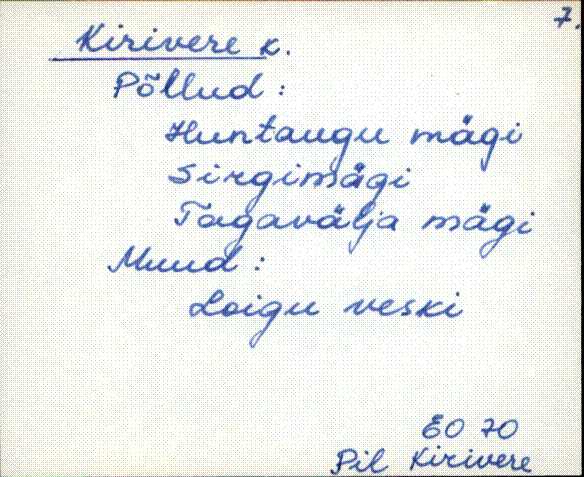 7.
Kirivere k.
Põllud :
Huntaugu mägi
Sirgimägi
Tagavälja mägi
Muud :
Loigu veski
EO 70
Pil Kirivere